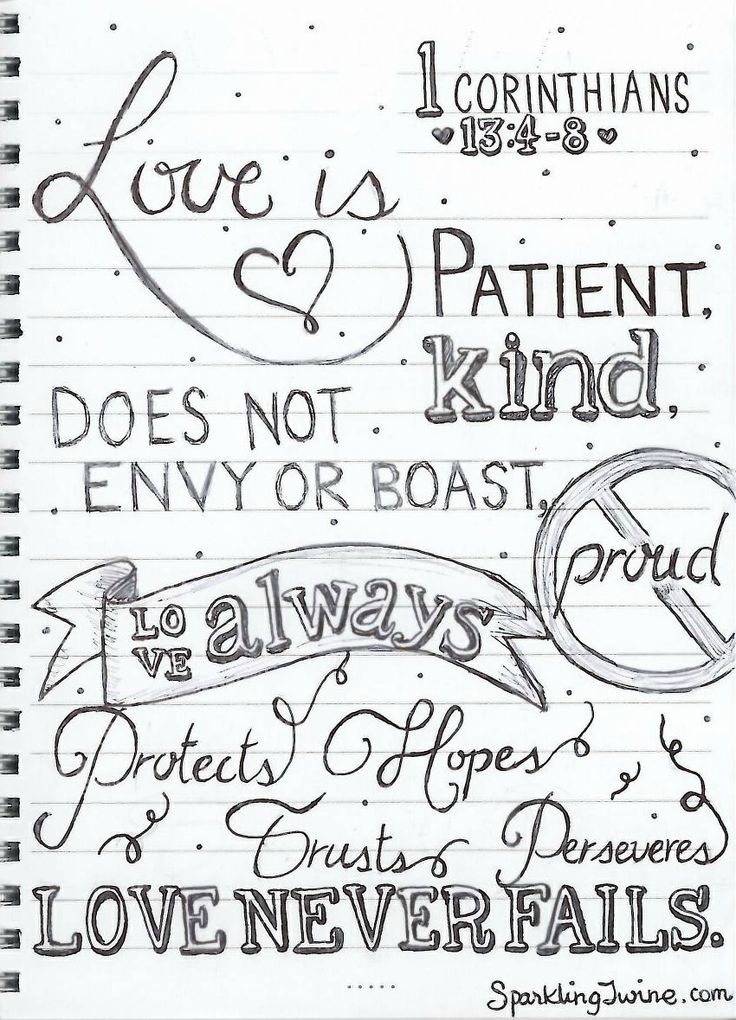 1 CORINTHIANS
13:4-8
Love is
PATIENT,
kind,
DOES NOT
ENVY OR BOAST,
proud
LOVE always
Protects Hopes
Trusts Perseveres
LOVE NEVER FAILS.
SparklingTwine.com